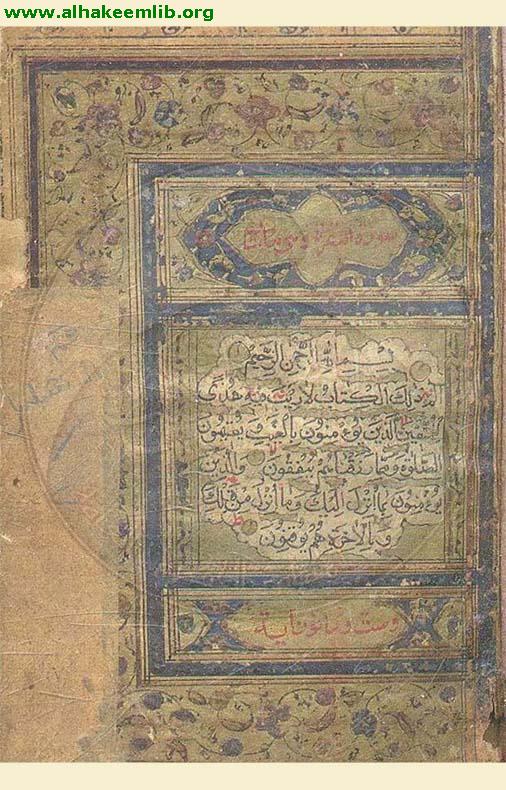 www.alhakeemlib.org
سورة البقرة وهي مائتا
بسم الله الرحمن الرحيم
الم ذلك الكتاب لا ريب فيه هدى
للمتقين الذين يؤمنون بالغيب ويقيمون
الصلوة ومما رزقناهم ينفقون والذين
يؤمنون بما أنزل اليك وما أنزل من قبلك
وبالآخرة هم يوقنون
وست وثمانون آية